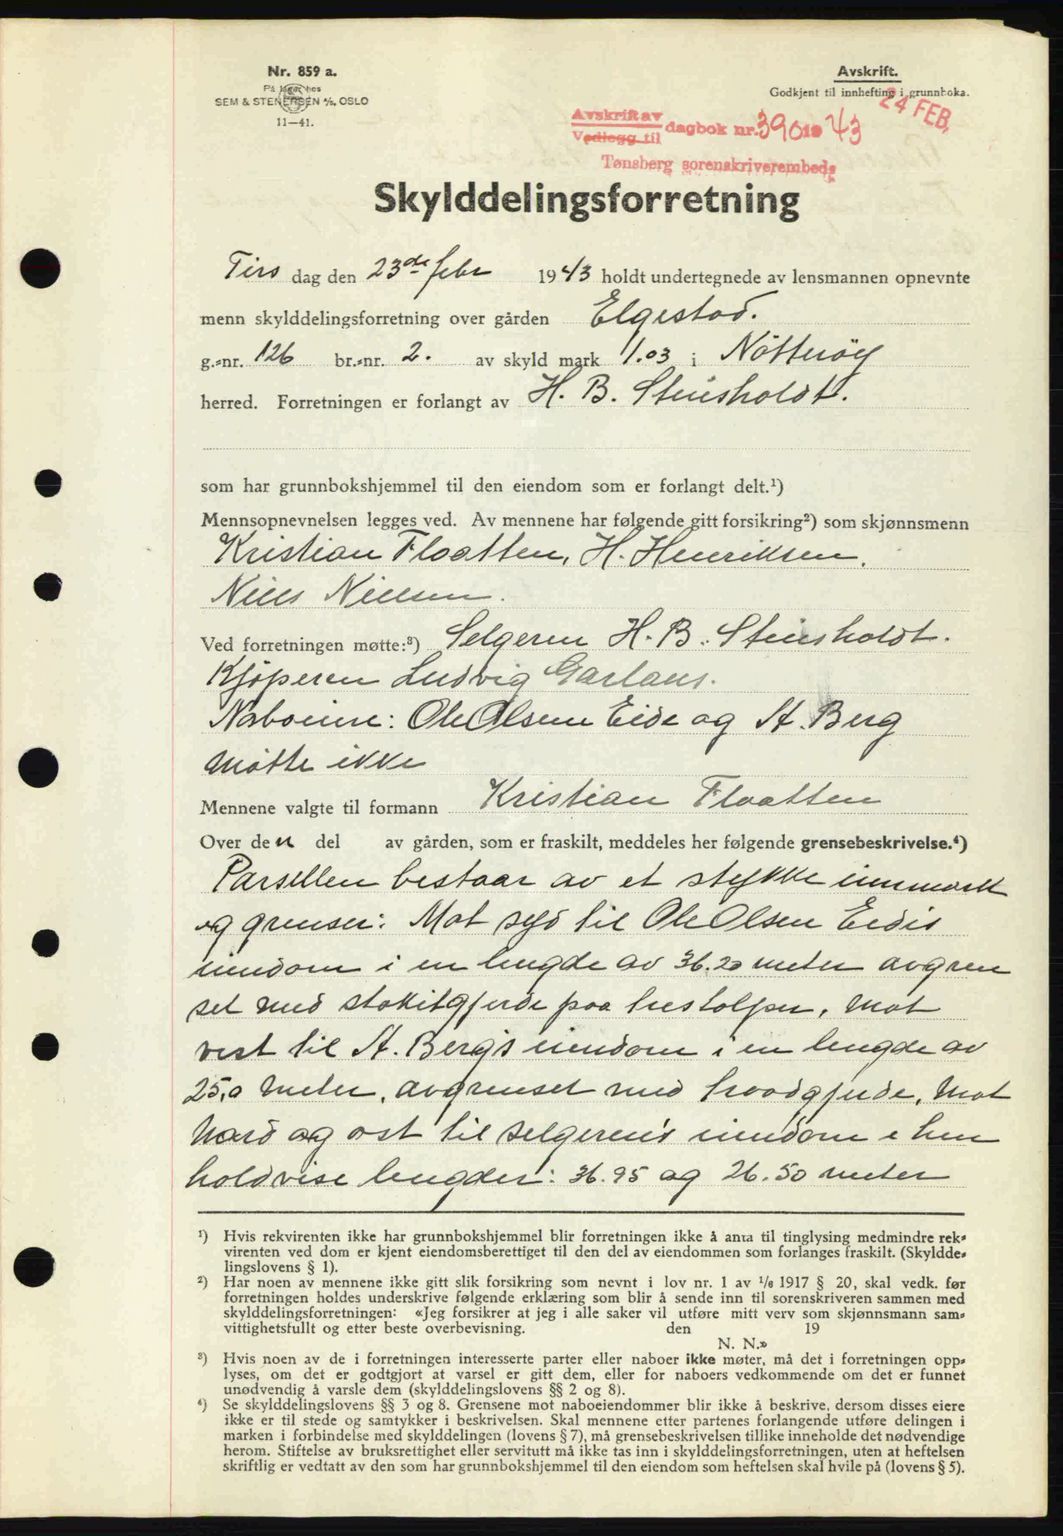 Nr. 859 a.
På lager hos
SEM & STENERSEN A/S, OSLO
11—41.
Avskrift.
Godkjent til innhefting i grunnboka.
24 FEB.
Avskrift av
Vedlegg til
dagbok nr. 390 19 43
Tønsberg sorenskriverembede
Skylddelingsforretning
Tirs dag den 23de febr 1943 holdt undertegnede av lensmannen opnevnte
menn skylddelingsforretning over gården Elgestad.
g.-nr. 126 br.-nr. 2. av skyld mark 1.03 i Nötteröy
herred. Forretningen er forlangt av H. B. Steisholdt.
som har grunnbokshjemmel til den eiendom som er forlangt delt.¹)
Mennsopnevnelsen legges ved. Av mennene har følgende gitt forsikring²) som skjønnsmenn
Kristian Flaatten, H. Henriksen,
Niels Nielsen.
Ved forretningen møtte:³) Selgeren H. B. Steisholdt.
Kjöperen Ludvig Garlaus.
Naboeine: Ole Olsen Eide og A. Berg
Mötte ikke
Mennene valgte til formann Kristian Flaatten
Over den del av gården, som er fraskilt, meddeles her følgende grensebeskrivelse.⁴)
Parsellen bestaar av et stykke innmark
og grenser: Mot syd til Ole Olsen Eides
eiendom i en lengde av 36.20 meter avgren
set med stakitgjerde paa trestolper, Mot
vest til A. Bergs eiendom i en lengde av
25,0 meter, avgrenset med traadgjerde, Mot
Nord og ost til selgerens eiendom i hen
holdvise lengder: 36.95 og 26.50 meter
¹) Hvis rekvirenten ikke har grunnbokshjemmel blir forretningen ikke å anta til tinglysing medmindre rek-
virenten ved dom er kjent eiendomsberettiget til den del av eiendommen som forlanges fraskilt. (Skyldde-
lingslovens § 1).
²) Har noen av mennene ikke gitt slik forsikring som nevnt i lov nr. 1 av 1/6 1917 § 20, skal vedk. før
forretningen holdes underskrive følgende erklæring som blir å sende inn til sorenskriveren sammen med
skylddelingsforretningen: «Jeg forsikrer at jeg i alle saker vil utføre mitt verv som skjønnsmann sam-
vittighetsfullt og etter beste overbevisning. den 19
N. N.»
³) Hvis noen av de i forretningen interesserte parter eller naboer ikke møter, må det i forretningen opp-
lyses, om det er godtgjort at varsel er gitt dem, eller for naboers vedkommende om det er funnet
unødvendig å varsle dem (skylddelingslovens §§ 2 og 8).
⁴) Se skylddelingslovens §§ 3 og 8. Grensene mot naboeiendommer blir ikke å beskrive, dersom disses eiere
ikke er til stede og samtykker i beskrivelsen. Skal mennene etter partenes forlangende utføre delingen i
marken i forbindelse med skylddelingen (lovens § 7), må grensebeskrivelsen tillike inneholde det nødvendige
herom. Stiftelse av bruksrettighet eller servitutt må ikke tas inn i skylddelingsforretningen, uten at heftelsen
skriftlig er vedtatt av den som har grunnbokshjemmel til den eiendom som heftelsen skal hvile på (lovens § 5).